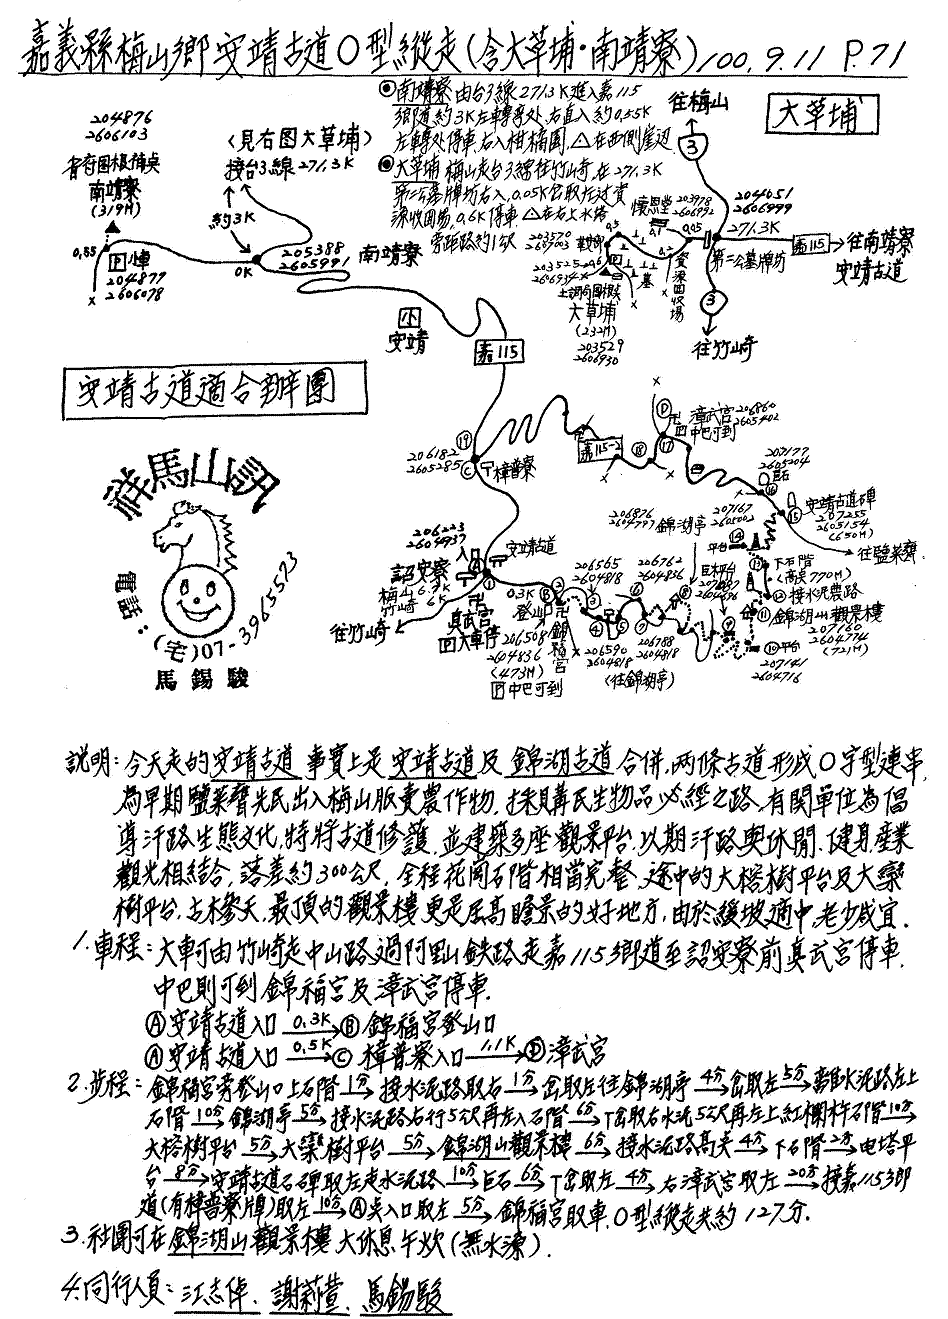 嘉義縣梅山鄉安靖古道O型縱走(含大草埔・南靖寮)100.9.11 P.71
◉南靖寮 由台3線271.3K進入嘉115
鄉道約3K左轉產處,右直入約0.55K
左轉處停車,右入柑橘園,△在西側崖邊.
◉大草埔 梅山走台3線往竹崎,在271.3K
第二公墓牌坊右入,0.05K岔取左過資
源收回場,0.6K停車,△在右上水塔
旁距路約1公尺
大草埔
往梅山
3
204051
2606999
271.3K
嘉115
往南靖寮
安靖古道
第二公墓牌坊
3
往竹崎
懷恩堂
203978
2606992
0.45
資源回收場
墓
203570
203525
2606934
大草埔
(232M)
203529
2606930
204876
2606103
南靖寮
(319M)
0.55
P
204877
2606078
(見右图大草埔)
接台3線271.3K
約3K
0K
205388
2605991
南靖寮
小
安靖
嘉115
安靖古道適合辦團
祥馬山訊
電話:(宅)07-3965523
馬錫駿
206182
2605285
⑲
Ⓒ
樟普寮
嘉115-2
⑱
⑰
Ⓓ
漳武宮
中巴可到
206860
2605402
207177
2605204
巨石
⑯
⑮
安靖古道石碑
207255
2605154
(650M)
往鹽菜甕
206223
2604937
入口
安靖古道
詔安寮
梅山6.9K
竹崎6K
往竹崎
真武宮
P大車停
0.3K
登山口
206508
2604836
(473M)
P中巴可到
錦福宮
206565
2604818
206590
2604818
206762
2604836
206788
2604818
(往錦湖亭)
206876
2604797
錦湖亭
207167
2605002
平台
⑭
⑬
下石階
(高点770M)
⑫
接水泥農路
⑪
錦湖山觀景樓
207160
2604774
(721M)
⑩
平台
207141
2604716
說明:今天走的安靖古道 事實上是 安靖古道及 錦湖古道 合併,两條古道形成O字型連串,
為早期鹽菜甕先民出入梅山販賣農作物.採購民生物品必經之路,有関單位為倡
導汗路生態文化,特將古道修護,並建築多座觀景平台,以期汗路與休閒.健身,產業
觀光相結合,落差約300公尺,全程花岡石階相當完整,途中的大榕樹平台及大欒
樹平台,古木參天,最頂的觀景樓更是居高瞻景的好地方,由於緩坡適中,老少咸宜.
1.車程:大車可由竹崎走中山路過阿里山鉄路走嘉115鄉道至詔安寮前真武宮停車.
中巴則可到錦福宮及漳武宮停車.
Ⓐ安靖古道入口 0.3K→ Ⓑ錦福宮登山口
Ⓐ安靖古道入口 0.5K→ Ⓒ樟普寮入口 1.1K→ Ⓓ漳武宮
2.步程:錦福宮旁登山口上石階 1分→ 接水泥路取右 1分→ 岔取左往錦湖亭 4分→ 岔取左 5分→ 離水泥路左上
石階 10分→ 錦湖亭 5分→ 接水泥路右行5公尺再左入石階 6分→ T岔取右水泥5公尺再左上紅欄杆石階 10分→
大榕樹平台 5分→ 大欒樹平台 5分→ 錦湖山觀景樓 6分→ 接水泥路高点 4分→ 下石階 2分→ 电塔平
台 8分→ 安靖古道石碑取左走水泥路 10分→ 巨石 6分→ T岔取左 4分→ 右漳武宮取左 20分→ 接嘉115鄉
道(有樟普寮牌)取左 10分→ Ⓐ点入口取左 5分→ 錦福宮取車.O型縱走共約127分.
3.社團可在錦湖山觀景樓 大休息午炊(無水源).
4.同行人員:江志偉. 謝莉萱. 馬錫駿